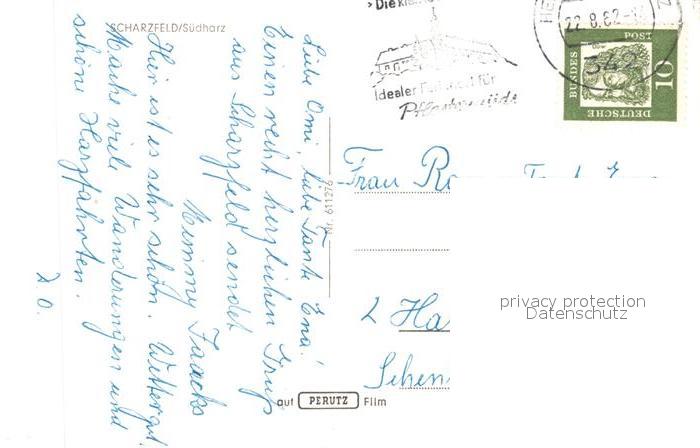 SCHARZFELD/Südharz
Liebe Omi, liebe Tante Erna!
Einen recht herzlichen Gruß
aus Scharzfeld sendet
Hier ist es sehr schön. Wetter gut.
Mache viele Wanderungen und
schöne Harzfahrten.
Nr. 611276
auf PERUTZ Film
Die
Idealer
für
22.8.62
342
DEUTSCHE
BUNDES
POST
10
Frau
2 Ha
Sehen
privacy protection
Datenschutz